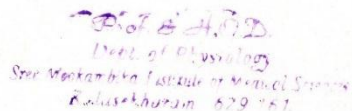 Prof & H.O.D.
Dept. of Physiology
Sree Mookambika Institute of Medical Sciences
Kulasekharam 629 161